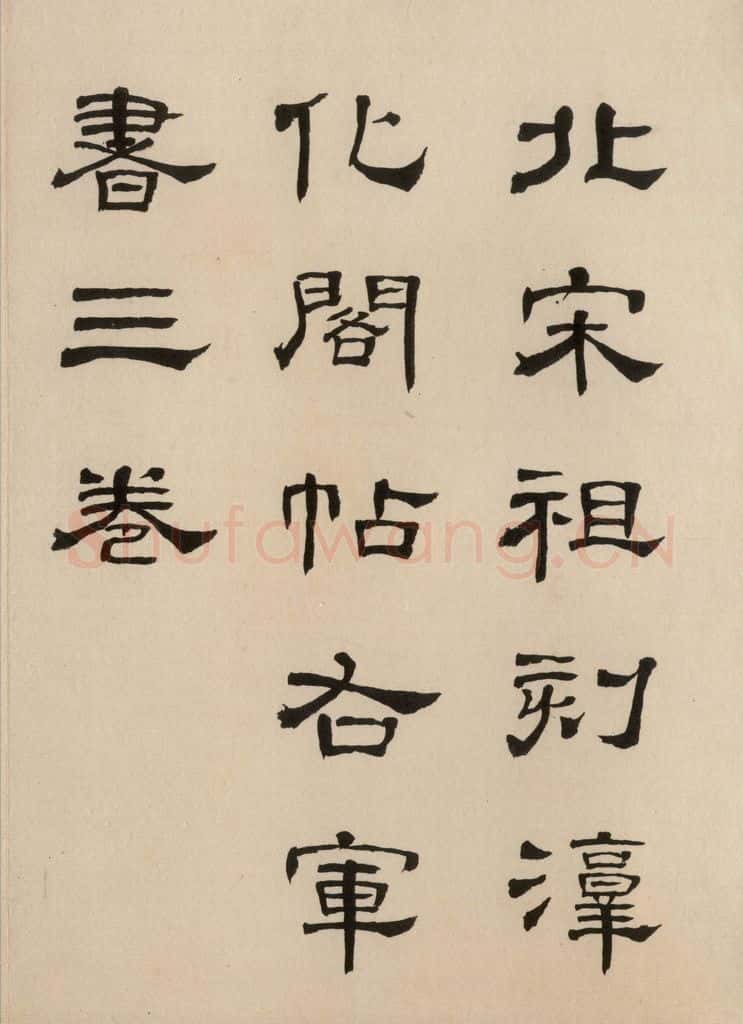 北宋祖刻淳
化閣帖右軍
書三卷
Shufawang.CN